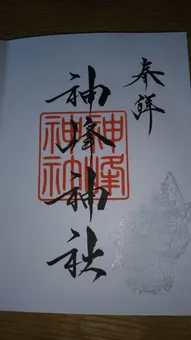 奉拝
神峰神社
神峰神社